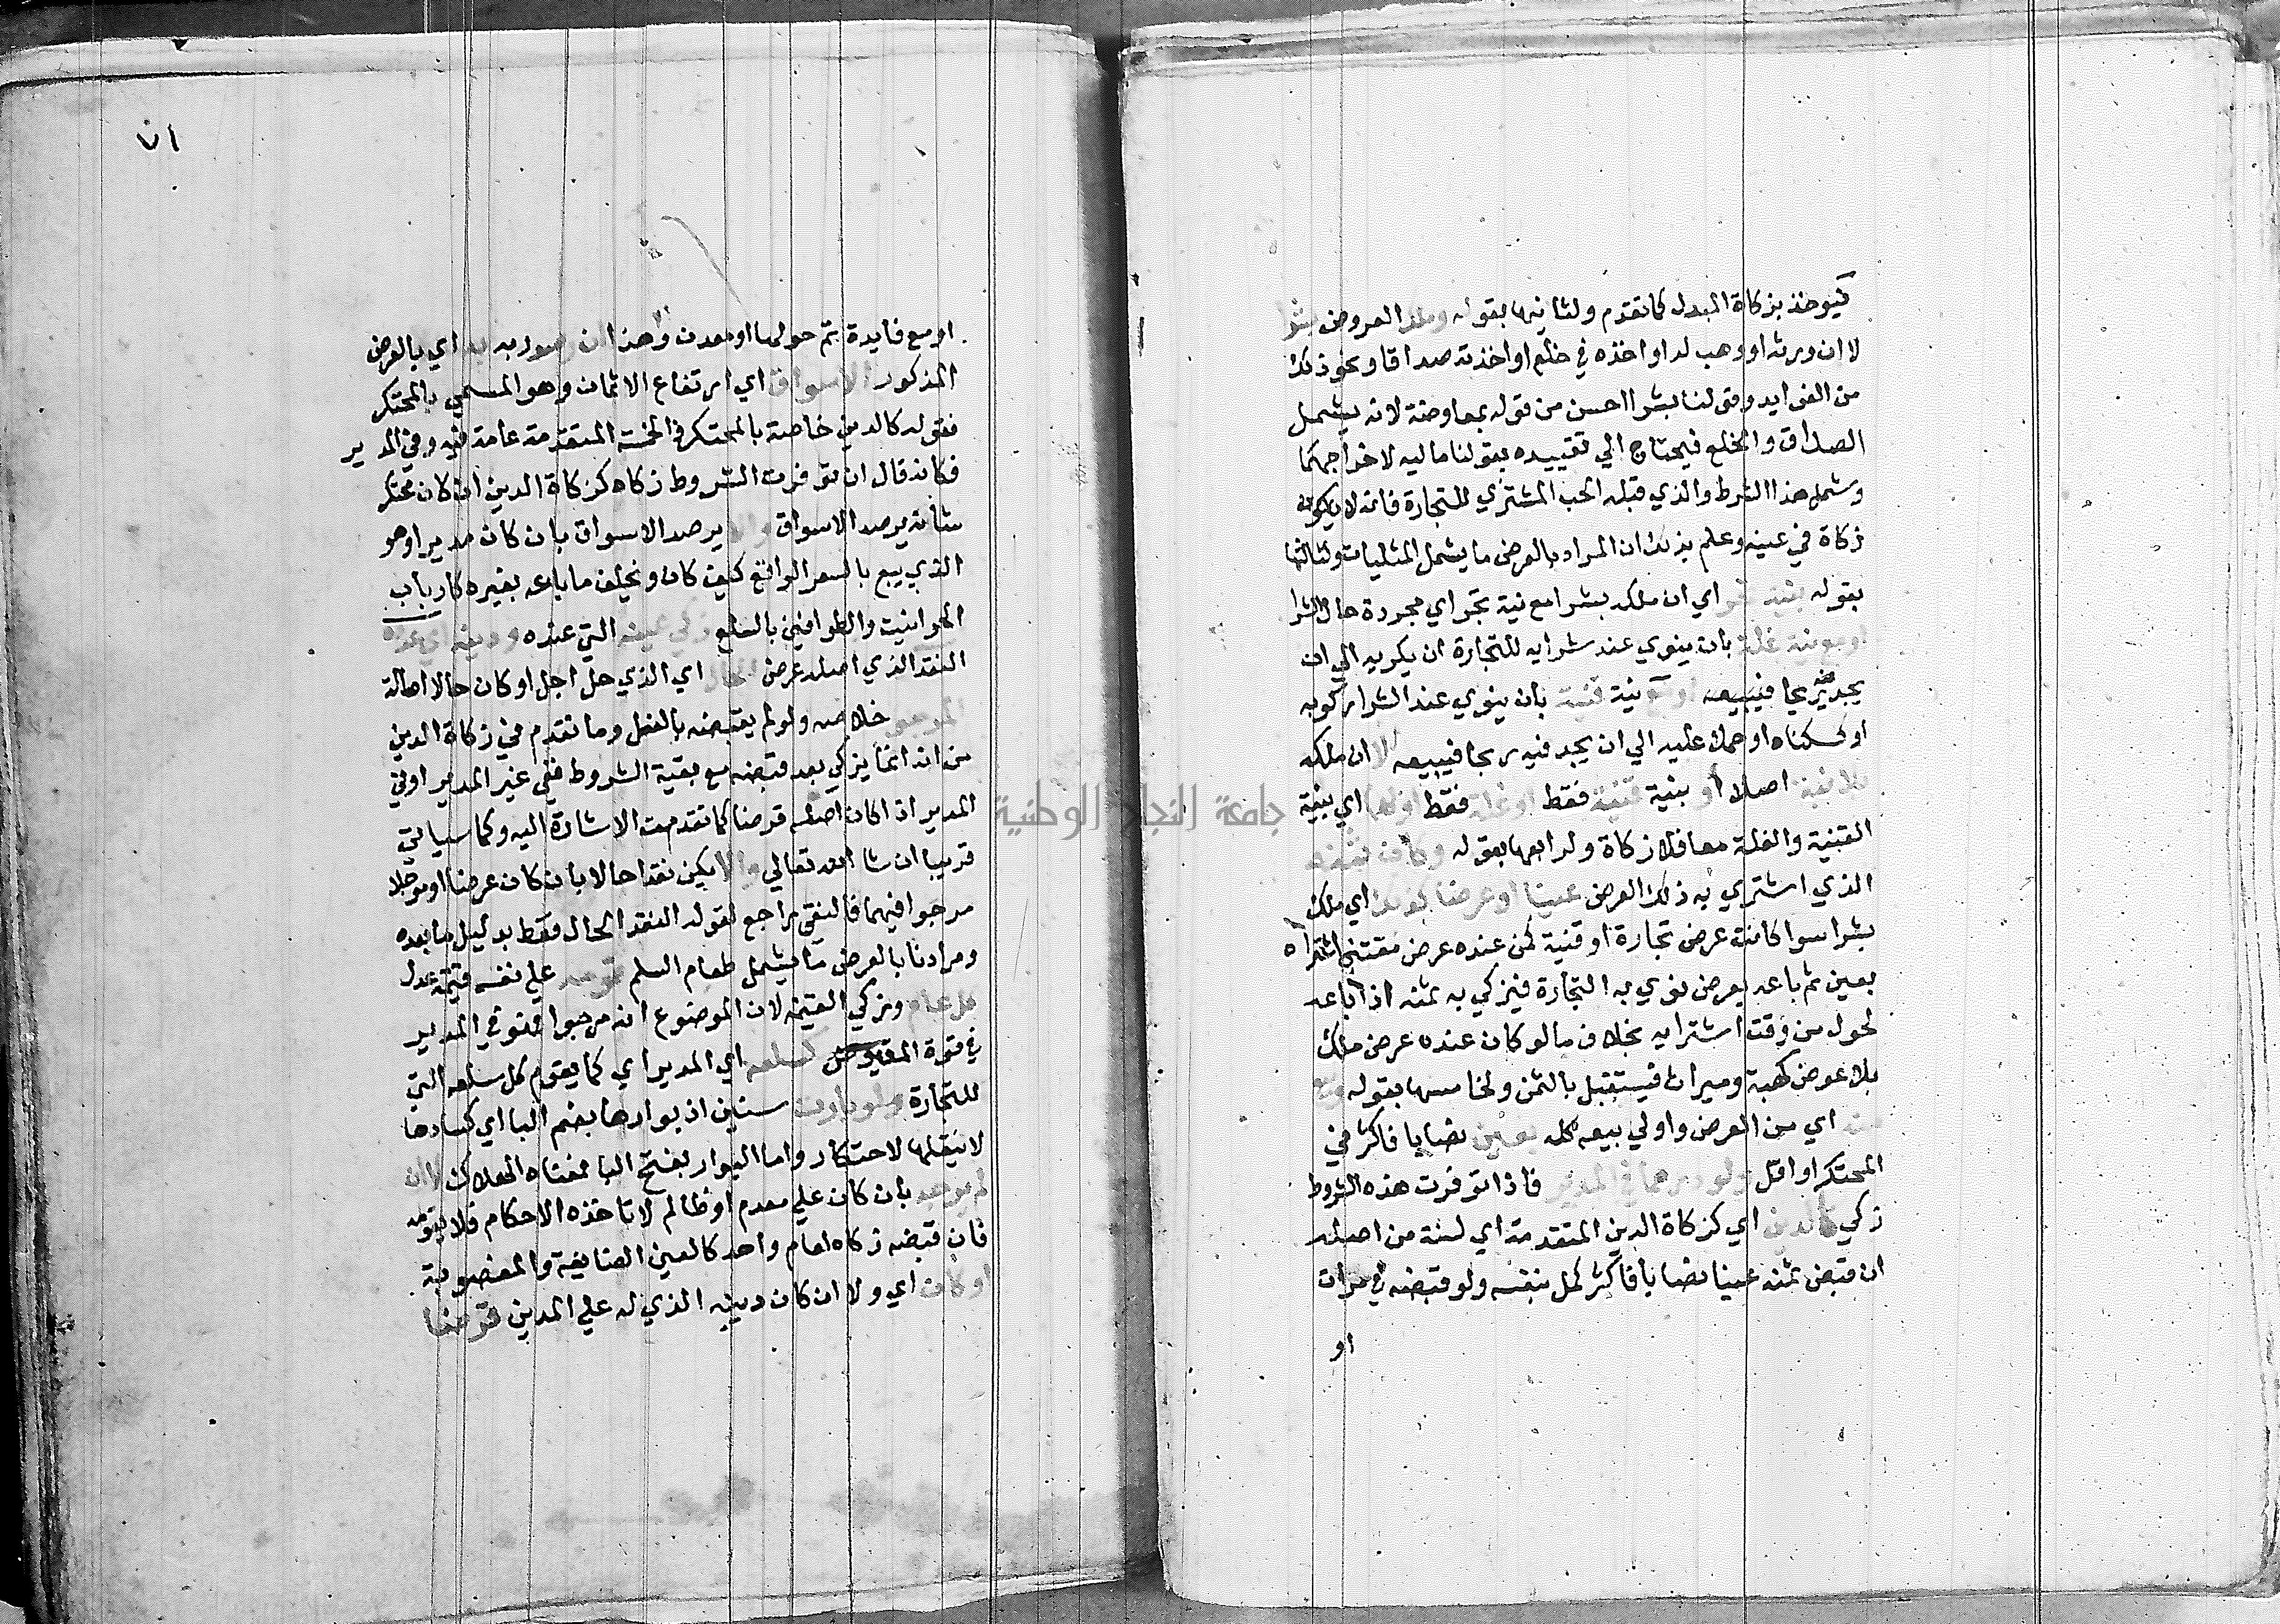 فيوخذ بزكاة المبدل كما تقدم ولثانيها بقوله وملك العروض بشرا
لا ان ورثه او وهب له او اخذه في خلع او اخذته صداقا ونحو ذلك
من الفوايد وقولنا بشرا احسن من قوله بمعاوضة لانه يشمل
الصداق والخلع فيحتاج الي تقييده بقولنا ماليه لاخراجهما
وشمل هذا الشرط والذي قبله الحب المشتري للتجارة فانه لا
زكاة في عينه وعلم بذلك ان المراد بالعرض ما يشمل المثليات ولثالثها
بقوله بنية تجر اي ان ملكه بشرا مع نية تجر اي مجردة حال الشرا
او مع نية غلة بان ينوي عند شرايه للتجارة ان يكريه الي ان
يجد فيه ربحا فيبيعه او مع نية قنية بان ينوي عند الشرا ركوبه
او سكناه او حملا عليه الي ان يجد فيه ربحا فيبيعه لا ان ملكه
بلا نية اصلا او بنية قنية فقط او غلة فقط او هما اي بنية
القنية والغلة معا فلا زكاة ولرابعها بقوله وكان ثمنه
الذي اشتري به ذلك العرض عينا او عرضا كذلك اي ملك
بشرا سوا كانت عرض تجارة او قنية كمن عنده عرض مقتني اشتراه
بعين ثم باعه بعرض نوي به التجارة فيزكي به ثمنه اذا باعه
لحول من وقت اشترايه بخلاف ما لو كان عنده عرض ملك
بلا عوض كهبة وميراث فيستقبل بالثمن ولخامسها بقوله وبيع
منه اي من العرض واولي بيعه كله بعين نصابا فاكثر في
المحتكر او اقل ولو درهما في المدير فاذا توفرت هذه الشروط
زكي كالدين اي كزكاة الدين المتقدمة اي لسنة من اصله
ان قبض ثمنه عينا نصابا فاكثر كمل بنفسه ولو قبضه في مرات
او
او مع فايدة تم حولها او معدن وهذا ان رصد به اي بالعرض
المذكور الاسواق اي ارتفاع الاثمان وهو المسمي بالمحتكر
فقوله كالدين خاصة بالمحتكر في الخمسة المتقدمة عامة فيه وفي المدير
فكانه قال ان توفرت الشروط زكاه كزكاة الدين ان كان محتكر
شأنه يرصد الاسواق والا يرصد الاسواق بان كان مديرا وهو
الذي يبيع بالسعر الواقع كيف كان ويخلف ما باعه بغيره كارباب
الحوانيت والطوافين بالسلع زكي عينه التي عنده ودينه اي عدده
النقد الذي اصله عرض الحال اي الذي حل اجله او كان حالا اصالة
المرجو خلاصه ولو لم يقبضه بالفعل وما تقدم في زكاة الدين
من انه انما يزكي بعد قبضه مع بقية الشروط ففي غير المدير او في
المدير اذا كان اصله قرضا كما تقدمت الاشارة اليه وكما سياتي
قريبا ان شا الله تعالي والا يكن نقدا حالا بان كان عرضا او موجلا
مرجوا فيهما فالنفي راجع لقوله النقد الحال فقط بدليل ما بعده
ومرادنا بالعرض ما يشمل طعام السلم قومه علي نفسه قيمة عدل
كل عام وزكي القيمة لان الموضوع انه مرجوا فهو في المدير
في قوة المقبوض كسلعه اي المدير اي كما يقوم كل سلعه التي
للتجارة ولو بارت سنين اذ بوارها بضم البا اي كسادها
لا ينقلها لاحتكار واما البوار بفتح البا فمعناه الهلاك لا ان
لم يرجه بان كان علي معدم او ظالم لا تاخذه الاحكام فلا يقومه
فان قبضه زكاه لعام واحد كالعين الضايعة والمغصوبة
او كان اي ولا ان كان دينه الذي له علي المدين قرضا
جامعة النجاح الوطنية